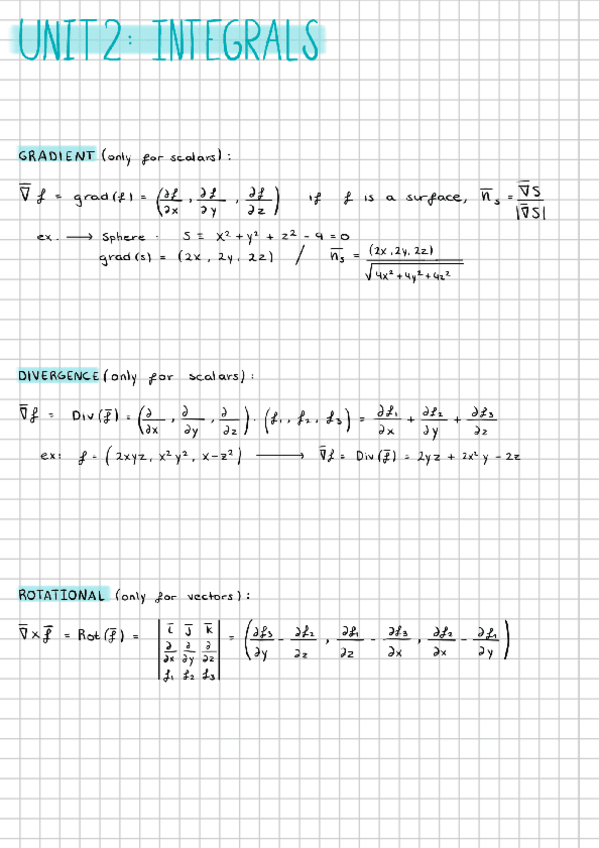 UNIT 2: INTEGRALS
GRADIENT (only for scalars):
∇̅ f = grad(f) = (∂f/∂x, ∂f/∂y, ∂f/∂z) if f is a surface, n̅ₛ = ∇̅S/|∇̅S|
ex. ⟶ Sphere: S = x² + y² + z² - 9 = 0
grad(s) = (2x, 2y, 2z) / n̅ₛ = (2x, 2y, 2z)/√(4x² + 4y² + 4z²)
DIVERGENCE (only for scalars):
∇̅f = Div(f̅) = (∂/∂x, ∂/∂y, ∂/∂z) · (f₁, f₂, f₃) = ∂f₁/∂x + ∂f₂/∂y + ∂f₃/∂z
ex: f = (2xyz, x²y², x-z²) ⟶ ∇̅f = Div(f̅) = 2yz + 2x²y - 2z
ROTATIONAL (only for vectors):
∇̅ x f̅ = Rot(f̅) = | i̅ j̅ k̅ ; ∂/∂x ∂/∂y ∂/∂z ; f₁ f₂ f₃ | = (∂f₃/∂y - ∂f₂/∂z, ∂f₁/∂z - ∂f₃/∂x, ∂f₂/∂x - ∂f₁/∂y)